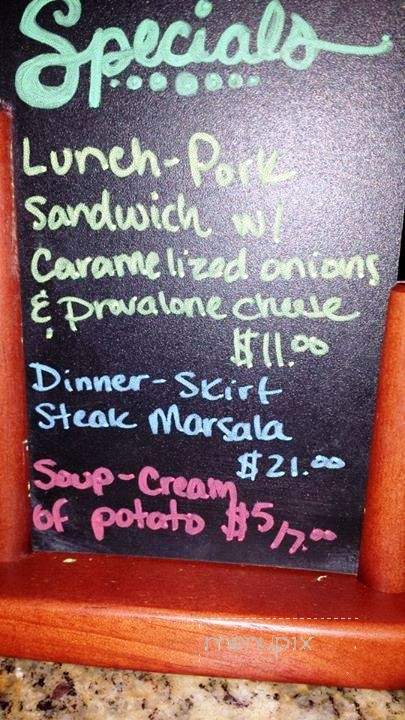 Specials
Lunch-Pork
Sandwich w/
Caramelized onions
& Provalone cheese
$11.00
Dinner-Skirt
Steak Marsala
$21.00
Soup-Cream
of potato $5/7.00
menupix